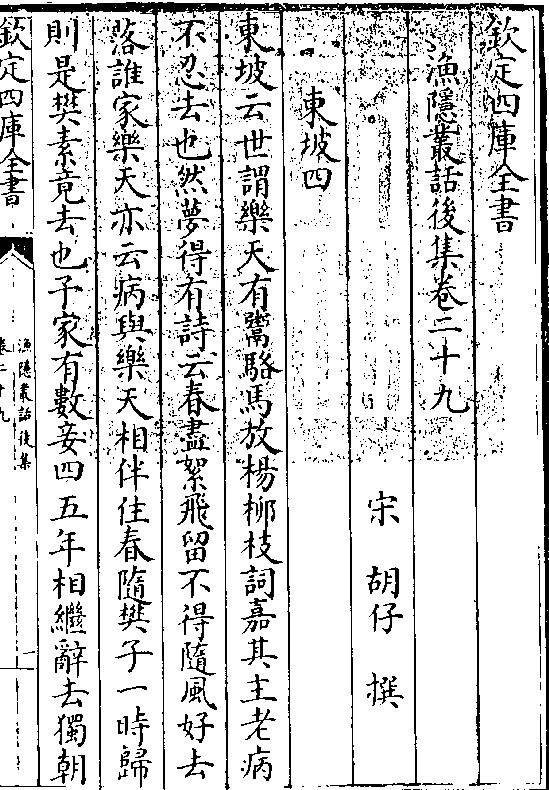 欽定四庫全書
漁隱叢話後集卷二十九
宋　胡仔　撰
東坡四
東坡云世謂樂天有鬻駱馬放楊柳枝詞嘉其主老病
不忍去也然夢得有詩云春盡絮飛留不得隨風好去
落誰家樂天亦云病與樂天相伴住春隨樊子一時歸
則是樊素竟去也予家有數妾四五年相繼辭去獨朝
欽定四庫全書
漁隱叢話後集
卷二十九
一